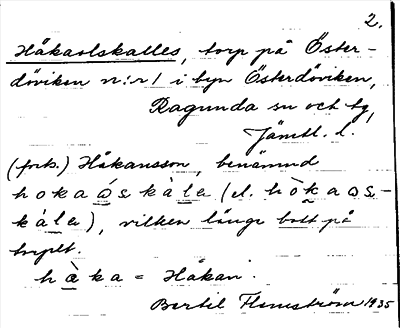 2.
Håkaolskalles, torp på Öster-
döviken nr:r 1 i byn Österdöviken,
Ragunda sn och tg,
Jämtl. l.
(forts.) Håkansson, benämnd
hokaóskàla (el. hòkaos-
kála), vilken länge bott på
torpet.
hàka = Håkan.
Bertil Flemström 1935